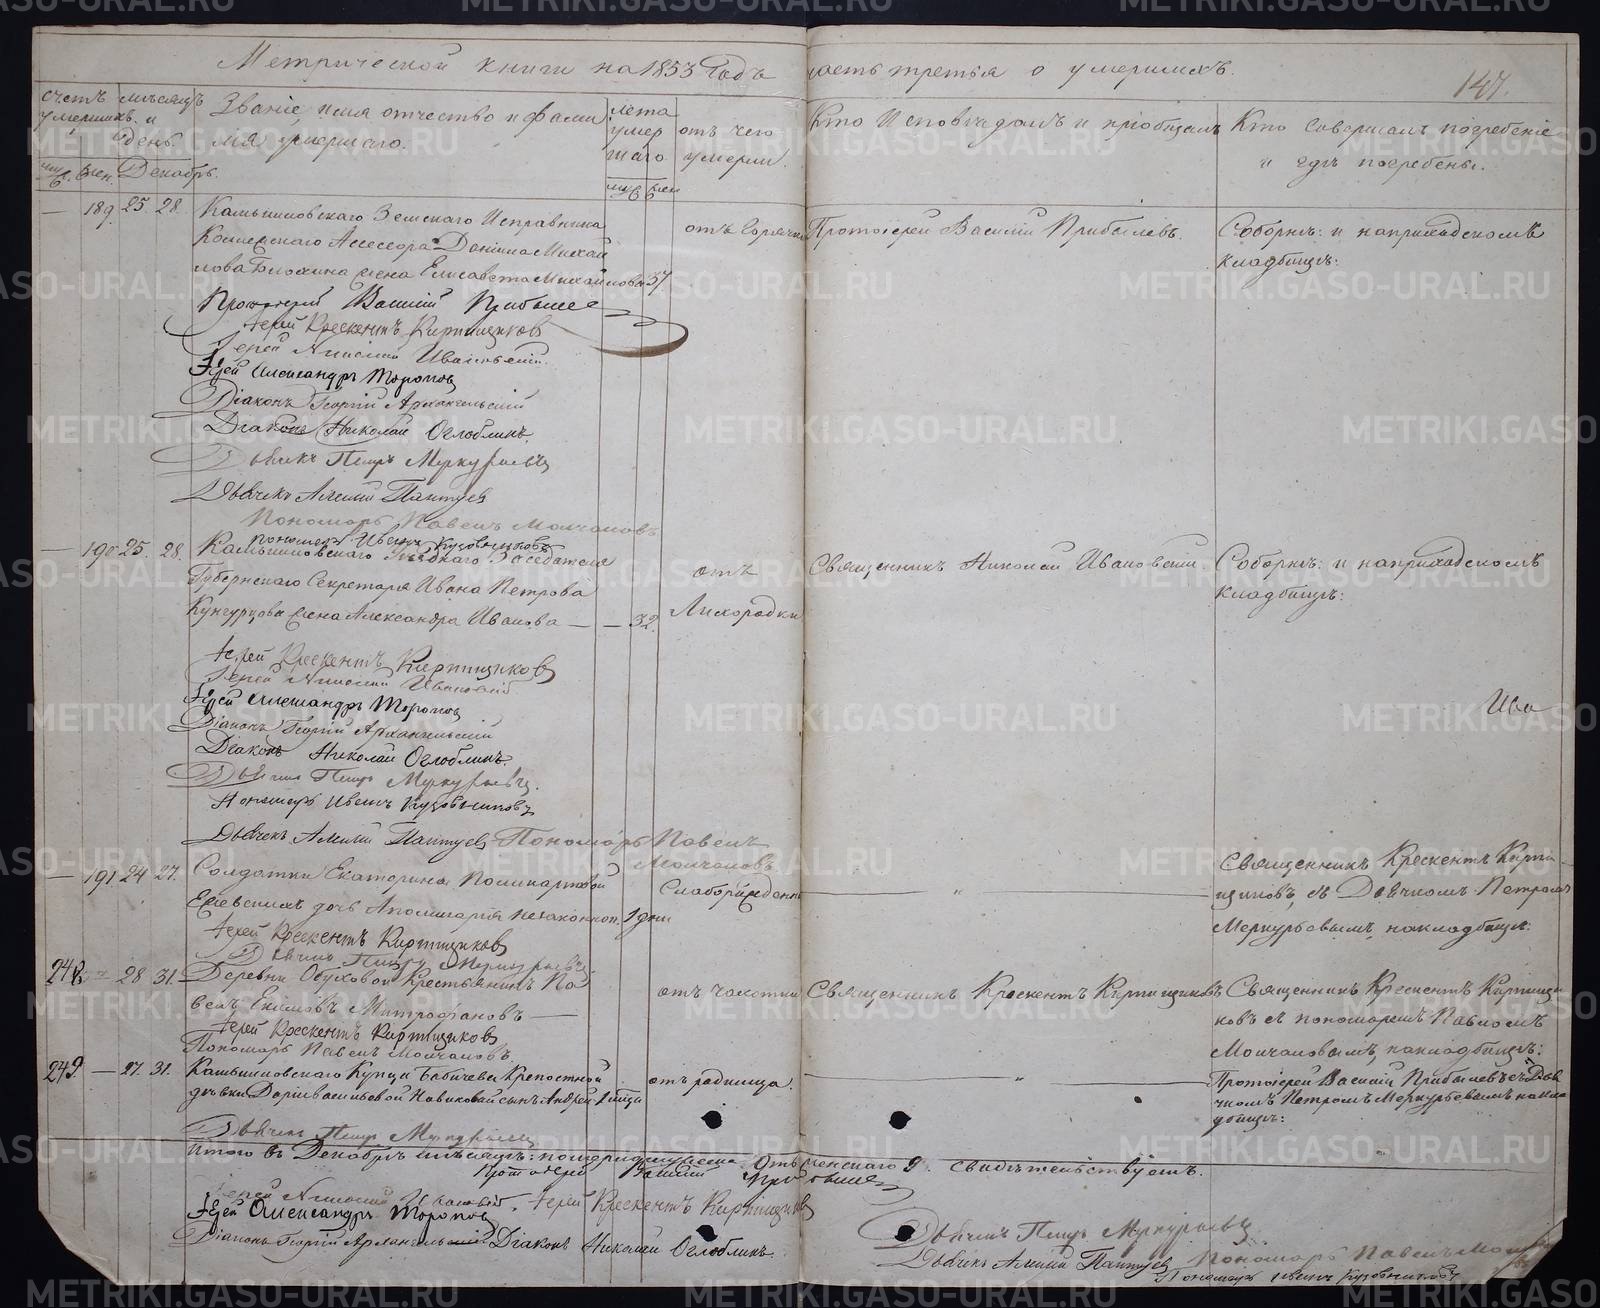 Метрической книги на 1853 Годъ часть третья о умершихъ.
147.
Счетъ умершихъ.
муж. жен.
Мѣсяцъ и день.
Декабрь.
Званіе, имя, отчество и фами
лія умершаго.
Лета
умер
шаго
муж жен
отъ чего
умерли.
Кто Исповѣдалъ и пріобщалъ
Кто Совершалъ погребеніе
и гдѣ погребены.
— 189. 25. 28.
Камышловскаго Земскаго Исправника
Коллежскаго Асессора Даніила Михай
лова Блохина жена Елисавета Михайлова 37.
отъ Горячки
Протоіерей Василій Прибылевъ.
Соборнѣ: и на приходскомъ
кладбищѣ:
Протоіерей Василій Прибылев
Іерей Крескентъ Кирпищиковъ
Іерей Ивановскій.
Іерей Александръ Торопов
Діаконъ Георгій Архангельскій
Діаконъ Николай Оглоблинъ.
Дьячекъ Петръ Меркурьевъ
Дьячекъ Пантуев
Пономарь Павелъ Молчановъ
Пономарь Иванъ Кузовниковъ
— 190 25. 28.
Камышловскаго Заседателя
Губернскаго Секретаря Ивана Петрова
Кунгурцова жена Александра Иванова — — 32.
отъ
Лихорадки
Священникъ Николай Ивановскій.
Соборнѣ: и на приходскомъ
кладбищѣ:
Іерей Крескентъ Кирпищиков
Іерей Ивановскій
Іерей Александръ Торопов
Діаконъ Георгій Архангельскій
Діаконъ Николай Оглоблинъ.
Дьячекъ Петръ Меркурьевъ.
Пономарь Иванъ Кузовниковъ
Дьячекъ Пантуев Пономарь Павелъ
Молчановъ
Ива
— 191 24 27.
Солдатки Екатерины Поликарповой
дочь незаконнон. 1 дни
Слаборожденн
— „ —
Священникъ Крескентъ Кирпи
щиковъ, съ Дьячкомъ Петромъ
Меркурьевымъ, на кладбищѣ:
Іерей Крескентъ Кирпищиков
Дьячекъ Петръ Меркурьевъ
248 — 28 31.
Деревни Обуховой Крестьянинъ Па
велъ Екимовъ Митрофановъ —
отъ чахотки
Священникъ Крескентъ Кирпищиковъ
Священникъ Крескентъ Кирпищи
ковъ съ пономаремъ Павломъ
Молчановымъ, на кладбищѣ:
Іерей Крескентъ Кирпищиков
Пономарь Павелъ Молчановъ.
249. — 27. 31.
Камышловскаго Купца Бабичева Крепостной
дѣвки Дарьи Васильевой Новиковой сынъ Андрей
отъ родимца.
— „ —
Протоіерей Василій Прибылевъ съ Дья
чкомъ Петромъ Меркурьевымъ на кла
дбищѣ:
Дьячекъ Петръ Меркурьевъ
Итого въ Декабрѣ мѣсяцѣ: женскаго 9. свидѣтельствуемъ.
Протоіерей Василій Прибылев
Іерей Ивановскій. Іерей Крескентъ Кирпищиков
Іерей Александръ Торопов
Діаконъ Георгій Архангельскій Діаконъ Николай Оглоблинъ.
Дьячекъ Петръ Меркурьевъ
Дьячекъ Пантуев Пономарь Павелъ
Пономарь Иванъ Кузовниковъ
METRIKI.GASO-URAL.RU